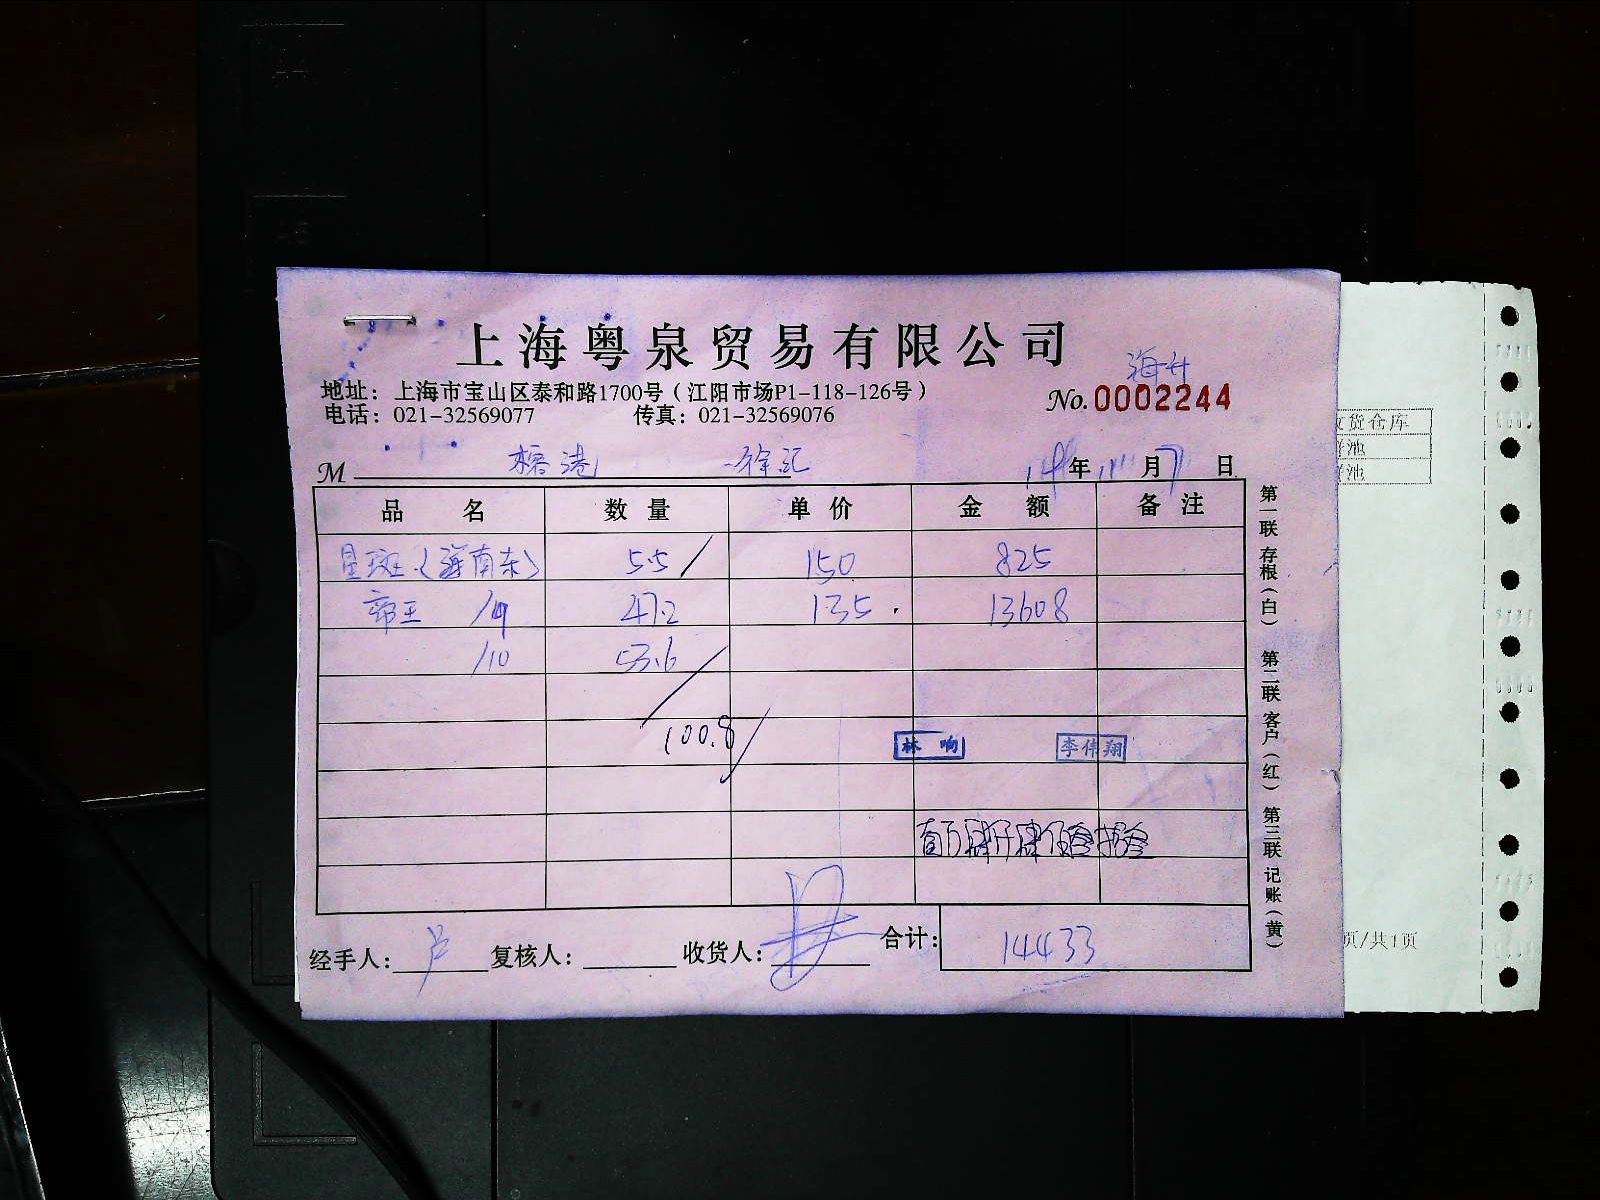 上海粤泉贸易有限公司
海升
地址：上海市宝山区泰和路1700号（江阳市场P1-118-126号）
No.0002244
电话：021-32569077 传真：021-32569076
M 榕港 徐记 年 月 7 日
品名 数量 单价 金额 备注
星斑（海南东） 5.5 150 825
帝王 /9 47.2 135 13608
/10 53.6
100.8
林响 李伟翔
壹万肆仟肆佰叁拾叁
经手人：卢 复核人： 收货人： 合计：14433
第一联 存根（白） 第二联 客户（红） 第三联 记账（黄）
货仓库
池
池
页/共1页